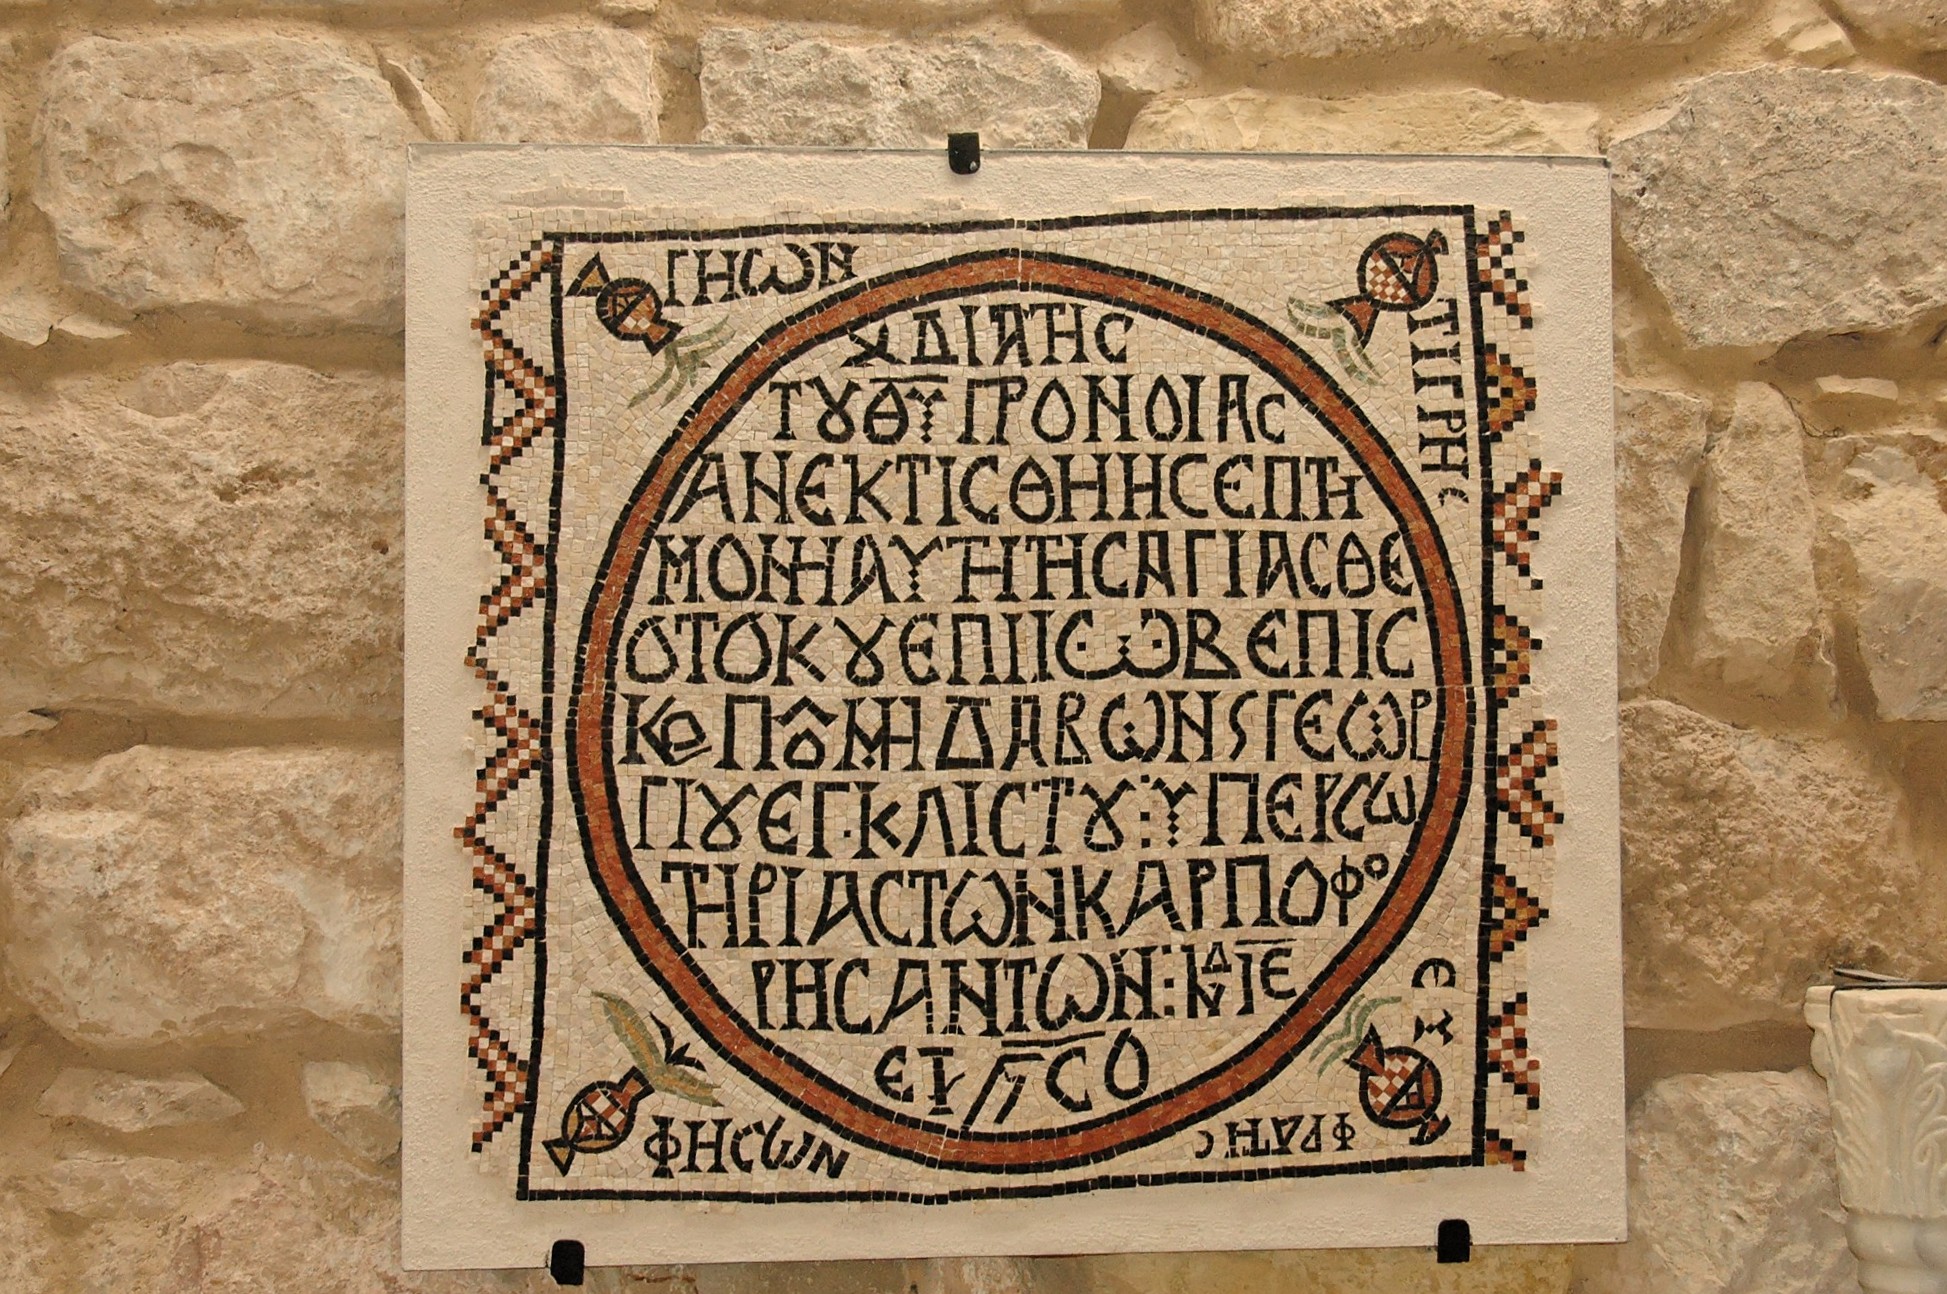 ΓΗΩΝ
ΤΙΓΡΗϹ
ϪΔΙΑΤΗϹ
ΤȢΘΥ̅ΠΡΟΝΟΙΑϹ
ΑΝΕΚΤΙϹΘΗΗϹΕΠΤΗ
ΜΟΝΗΑΥΤΗΤΗϹΑΓΙΑϹΘΕ
ΟΤΟΚȢΕΠΙΙϹΩΒΕΠΙϹ
ΚΟΠȢΜΗΔΑΒΩΝSΓΕΩΡ
ΓΙȢΕΓΚΛΙϹΤȢ:ΥΠΕΡϹΩ
ΤΗΡΙΑϹΤΩΝΚΑΡΠΟΦΟ
ΡΗϹΑΝΤΩΝ:ΙΝΔΙΕ
ΕΤ ϛϹΟ
ΦΗϹΩΝ
ΕΥ
ΦΡΑΤΗϹ